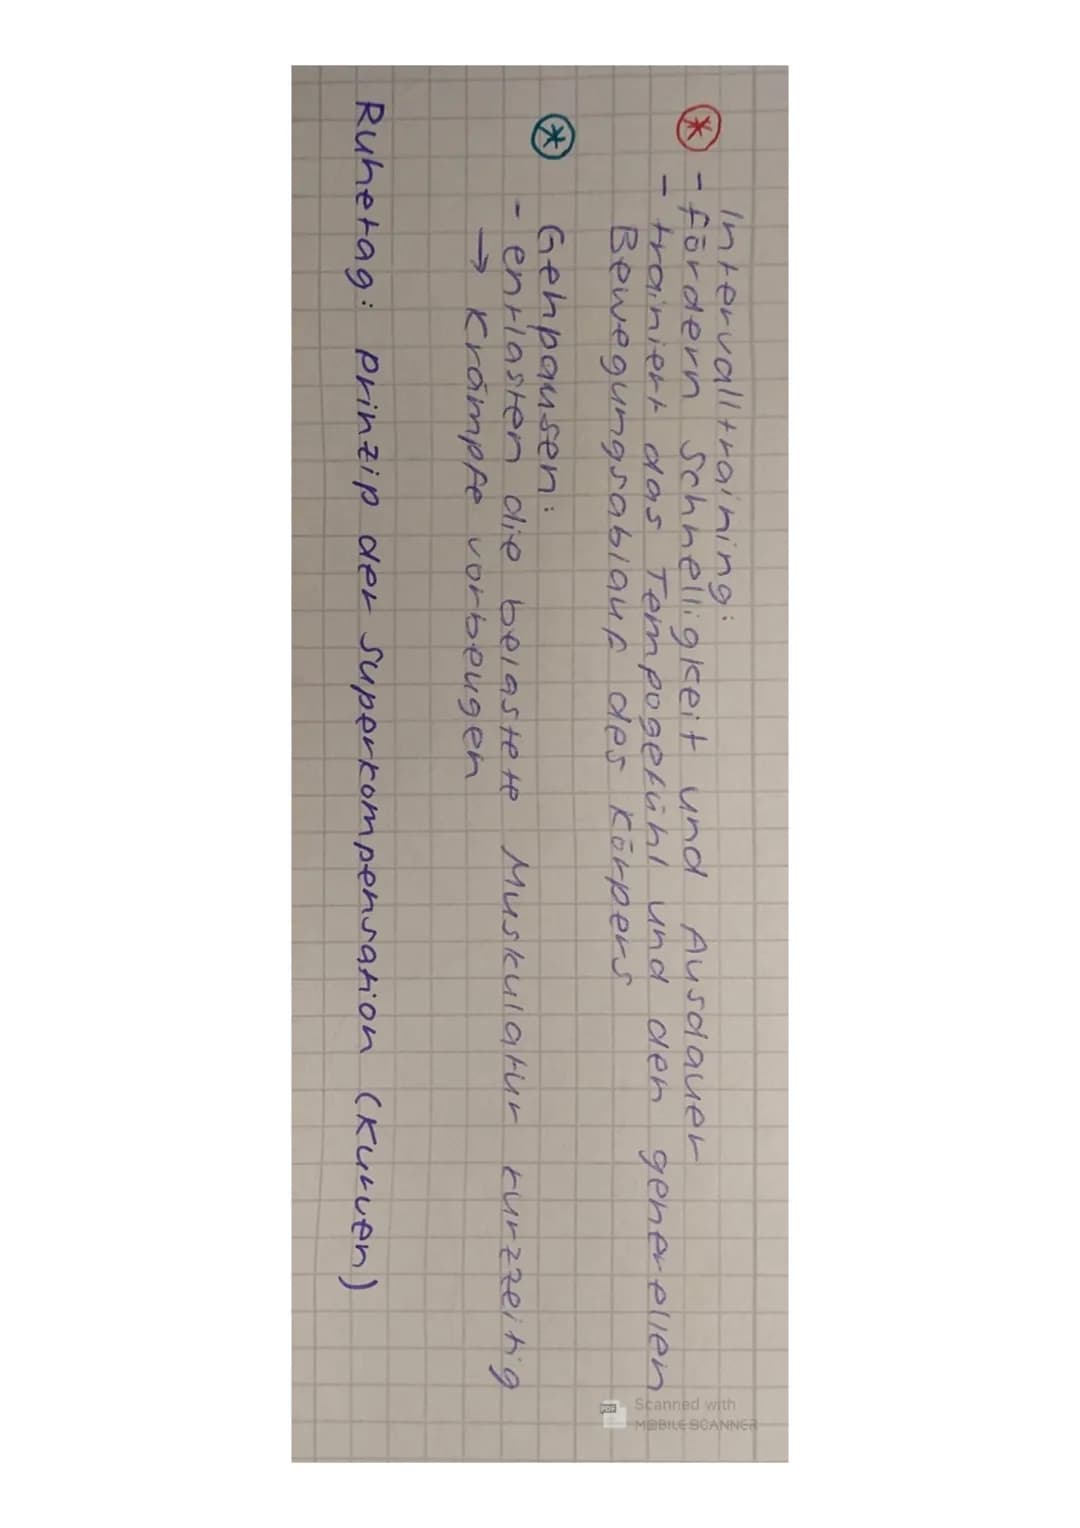 Intervalltraining:
- fördern Schnelligkeit und Ausdauer
- trainiert das Tempogefühl und den generellen
Bewegungsablauf des Körpers
Gehpausen:
- entlasten die belastete Muskulatur kurzzeitig
→ Krämpfe vorbeugen
Ruhetag: prinzip der Superkompensation (Kurven)
Scanned with
MOBILE SCANNER
PDF